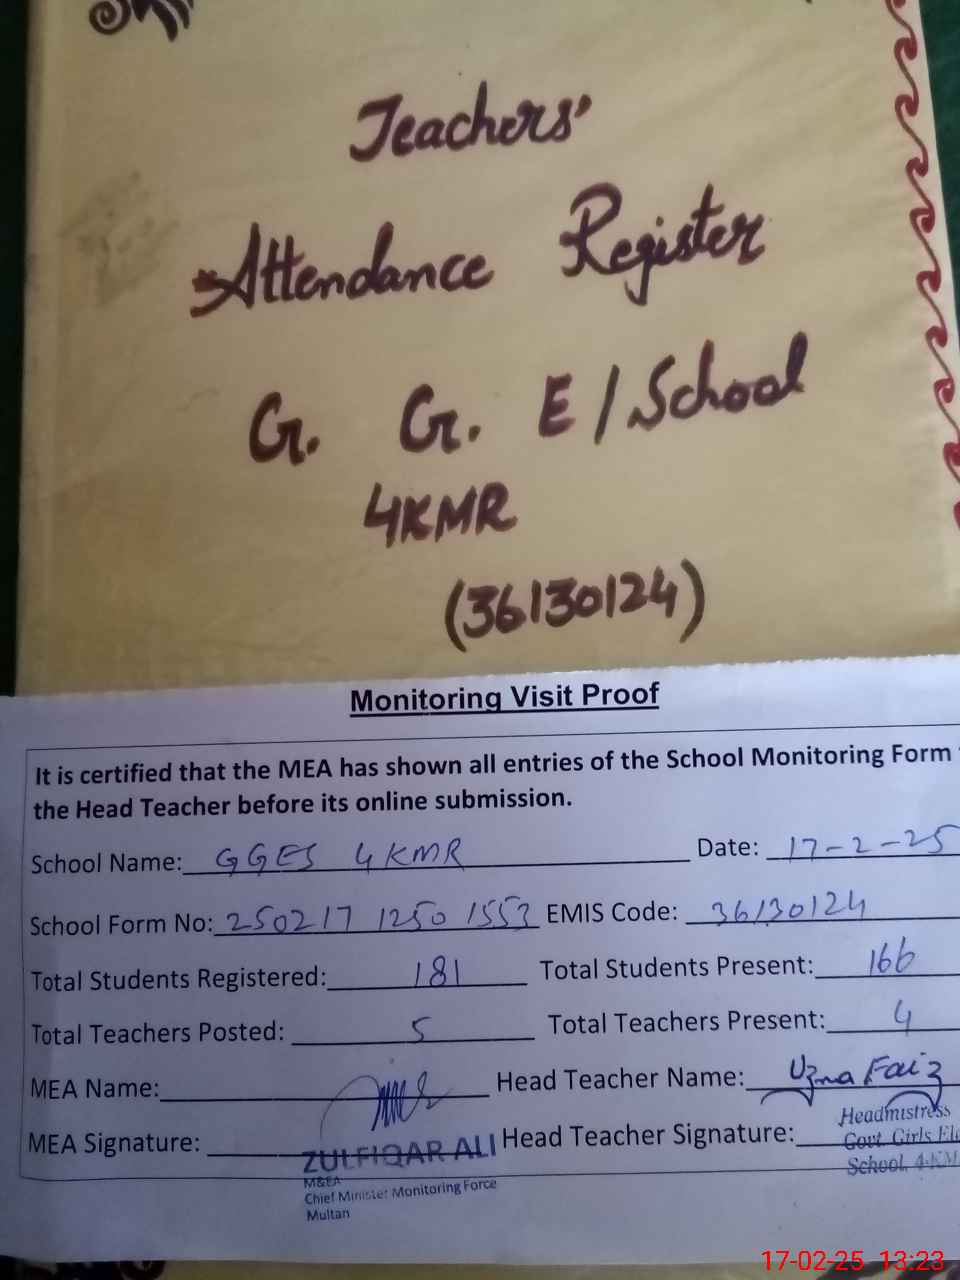 Teachers'
Attendance Register
G. G. E/School
4KMR
(36130124)
Monitoring Visit Proof
It is certified that the MEA has shown all entries of the School Monitoring Form
the Head Teacher before its online submission.
School Name: GGES 4KMR Date: 17-2-25
School Form No: 250217 1250 1553 EMIS Code: 36130124
Total Students Registered: 181 Total Students Present: 166
Total Teachers Posted: 5 Total Teachers Present: 4
MEA Name: Head Teacher Name: Uzma Faiz
MEA Signature: Head Teacher Signature:
ZULFIQAR ALI
M&EA
Chief Minister Monitoring Force
Multan
Headmistress
Govt. Girls Ele
School, 4-KM
17-02-25 13:23